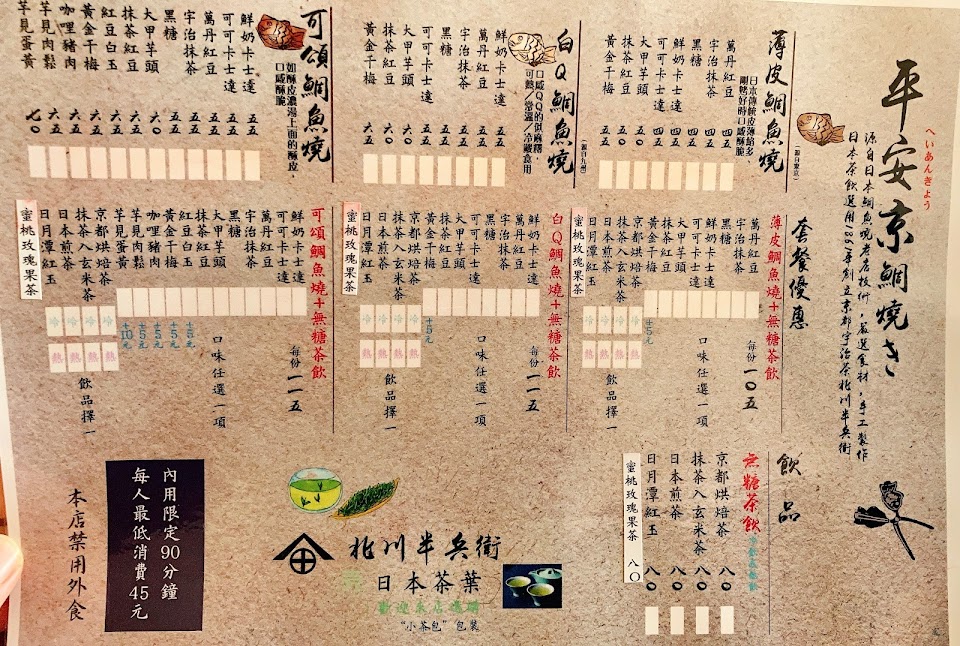 平安京鯛燒き
へいあんきょう
源自日本鯛魚燒老店技術,嚴選食材,手工製作
日本茶飲選用1861年創立京都宇治茶北川半兵衛
薄皮鯛魚燒
(源自東京)
日本傳統皮薄餡多,
剛烤好時口感酥脆。
萬丹紅豆 四五
宇治抹茶 四五
黑糖 四五
鮮奶卡士達 四五
可可卡士達 四五
大甲芋頭 五〇
抹茶紅豆 五〇
黃金干梅 五五
白Q鯛魚燒
(源自九州)
口感QQ的似麻糬,
可熱/常溫/冷藏食用
鮮奶卡士達 五五
萬丹紅豆 五五
宇治抹茶 五五
黑糖 五五
可可卡士達 五五
大甲芋頭 六〇
抹茶紅豆 六〇
黃金干梅 六五
可頌鯛魚燒
如酥皮濃湯上面的酥皮,
口感酥脆
鮮奶卡士達 五五
可可卡士達 五五
萬丹紅豆 五五
宇治抹茶 五五
黑糖 五五
大甲芋頭 六〇
抹茶紅豆 六五
紅豆白玉 六五
黃金干梅 六五
咖哩豬肉 六五
芋見肉鬆 六五
芋見蛋黃 七〇
套餐優惠
薄皮鯛魚燒+無糖茶飲
每份 一〇五
萬丹紅豆
宇治抹茶
黑糖
鮮奶卡士達
可可卡士達
大甲芋頭
抹茶紅豆
黃金干梅 +5元
口味任選一項
京都烘焙茶 冷 熱
抹茶入玄米茶 冷 熱
日本煎茶 冷 熱
日月潭紅玉 冷 熱
蜜桃玫瑰果茶
飲品擇一
白Q鯛魚燒+無糖茶飲
每份 一一五
鮮奶卡士達
萬丹紅豆
宇治抹茶
黑糖
可可卡士達
大甲芋頭
抹茶紅豆
黃金干梅 +5元
口味任選一項
京都烘焙茶 冷 熱
抹茶入玄米茶 冷 熱
日本煎茶 冷 熱
日月潭紅玉 冷 熱
蜜桃玫瑰果茶
飲品擇一
可頌鯛魚燒+無糖茶飲
每份 一一五
鮮奶卡士達
可可卡士達
萬丹紅豆
宇治抹茶
黑糖
大甲芋頭
抹茶紅豆
紅豆白玉 +5元
黃金干梅 +5元
咖哩豬肉 +5元
芋見肉鬆 +5元
芋見蛋黃 +10元
口味任選一項
京都烘焙茶 冷 熱
抹茶入玄米茶 冷 熱
日本煎茶 冷 熱
日月潭紅玉 冷 熱
蜜桃玫瑰果茶
飲品擇一
飲品
無糖茶飲
京都烘焙茶 八〇
抹茶入玄米茶 八〇
日本煎茶 八〇
日月潭紅玉 八〇
蜜桃玫瑰果茶 八〇
北川半兵衛
日本茶葉
歡迎來店選購
"小茶包"包裝
內用限定90分鐘
每人最低消費45元
本店禁用外食